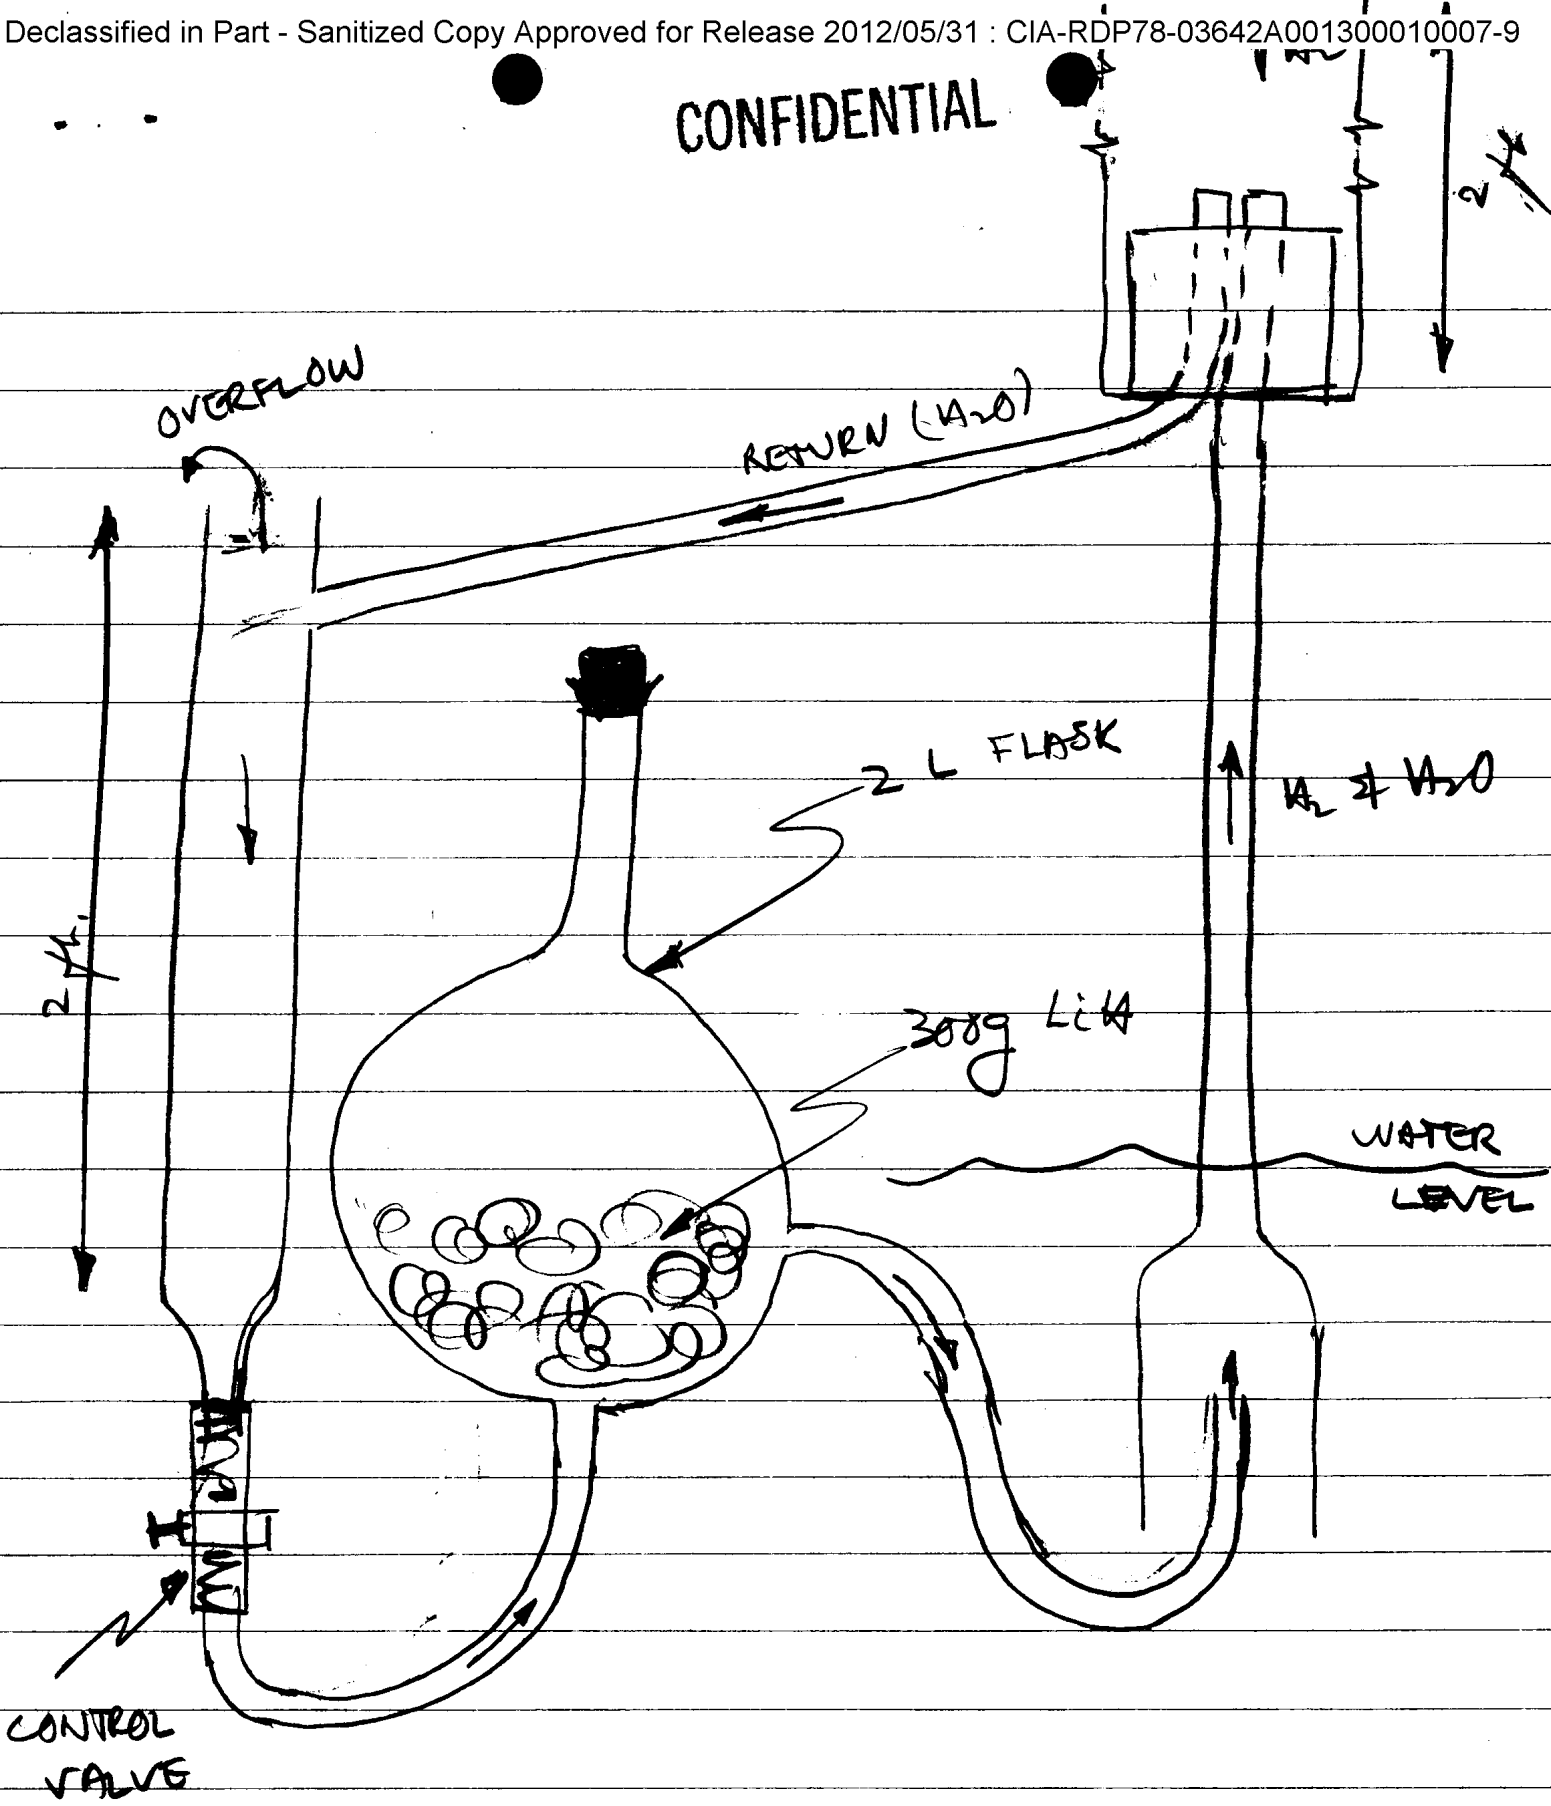 Declassified in Part - Sanitized Copy Approved for Release 2012/05/31 : CIA-RDP78-03642A001300010007-9
H2
CONFIDENTIAL
2 ft
OVERFLOW
RETURN (H2O)
2 L FLASK
H2 & H2O
2 ft.
300g LiH
WATER
LEVEL
CONTROL
VALVE